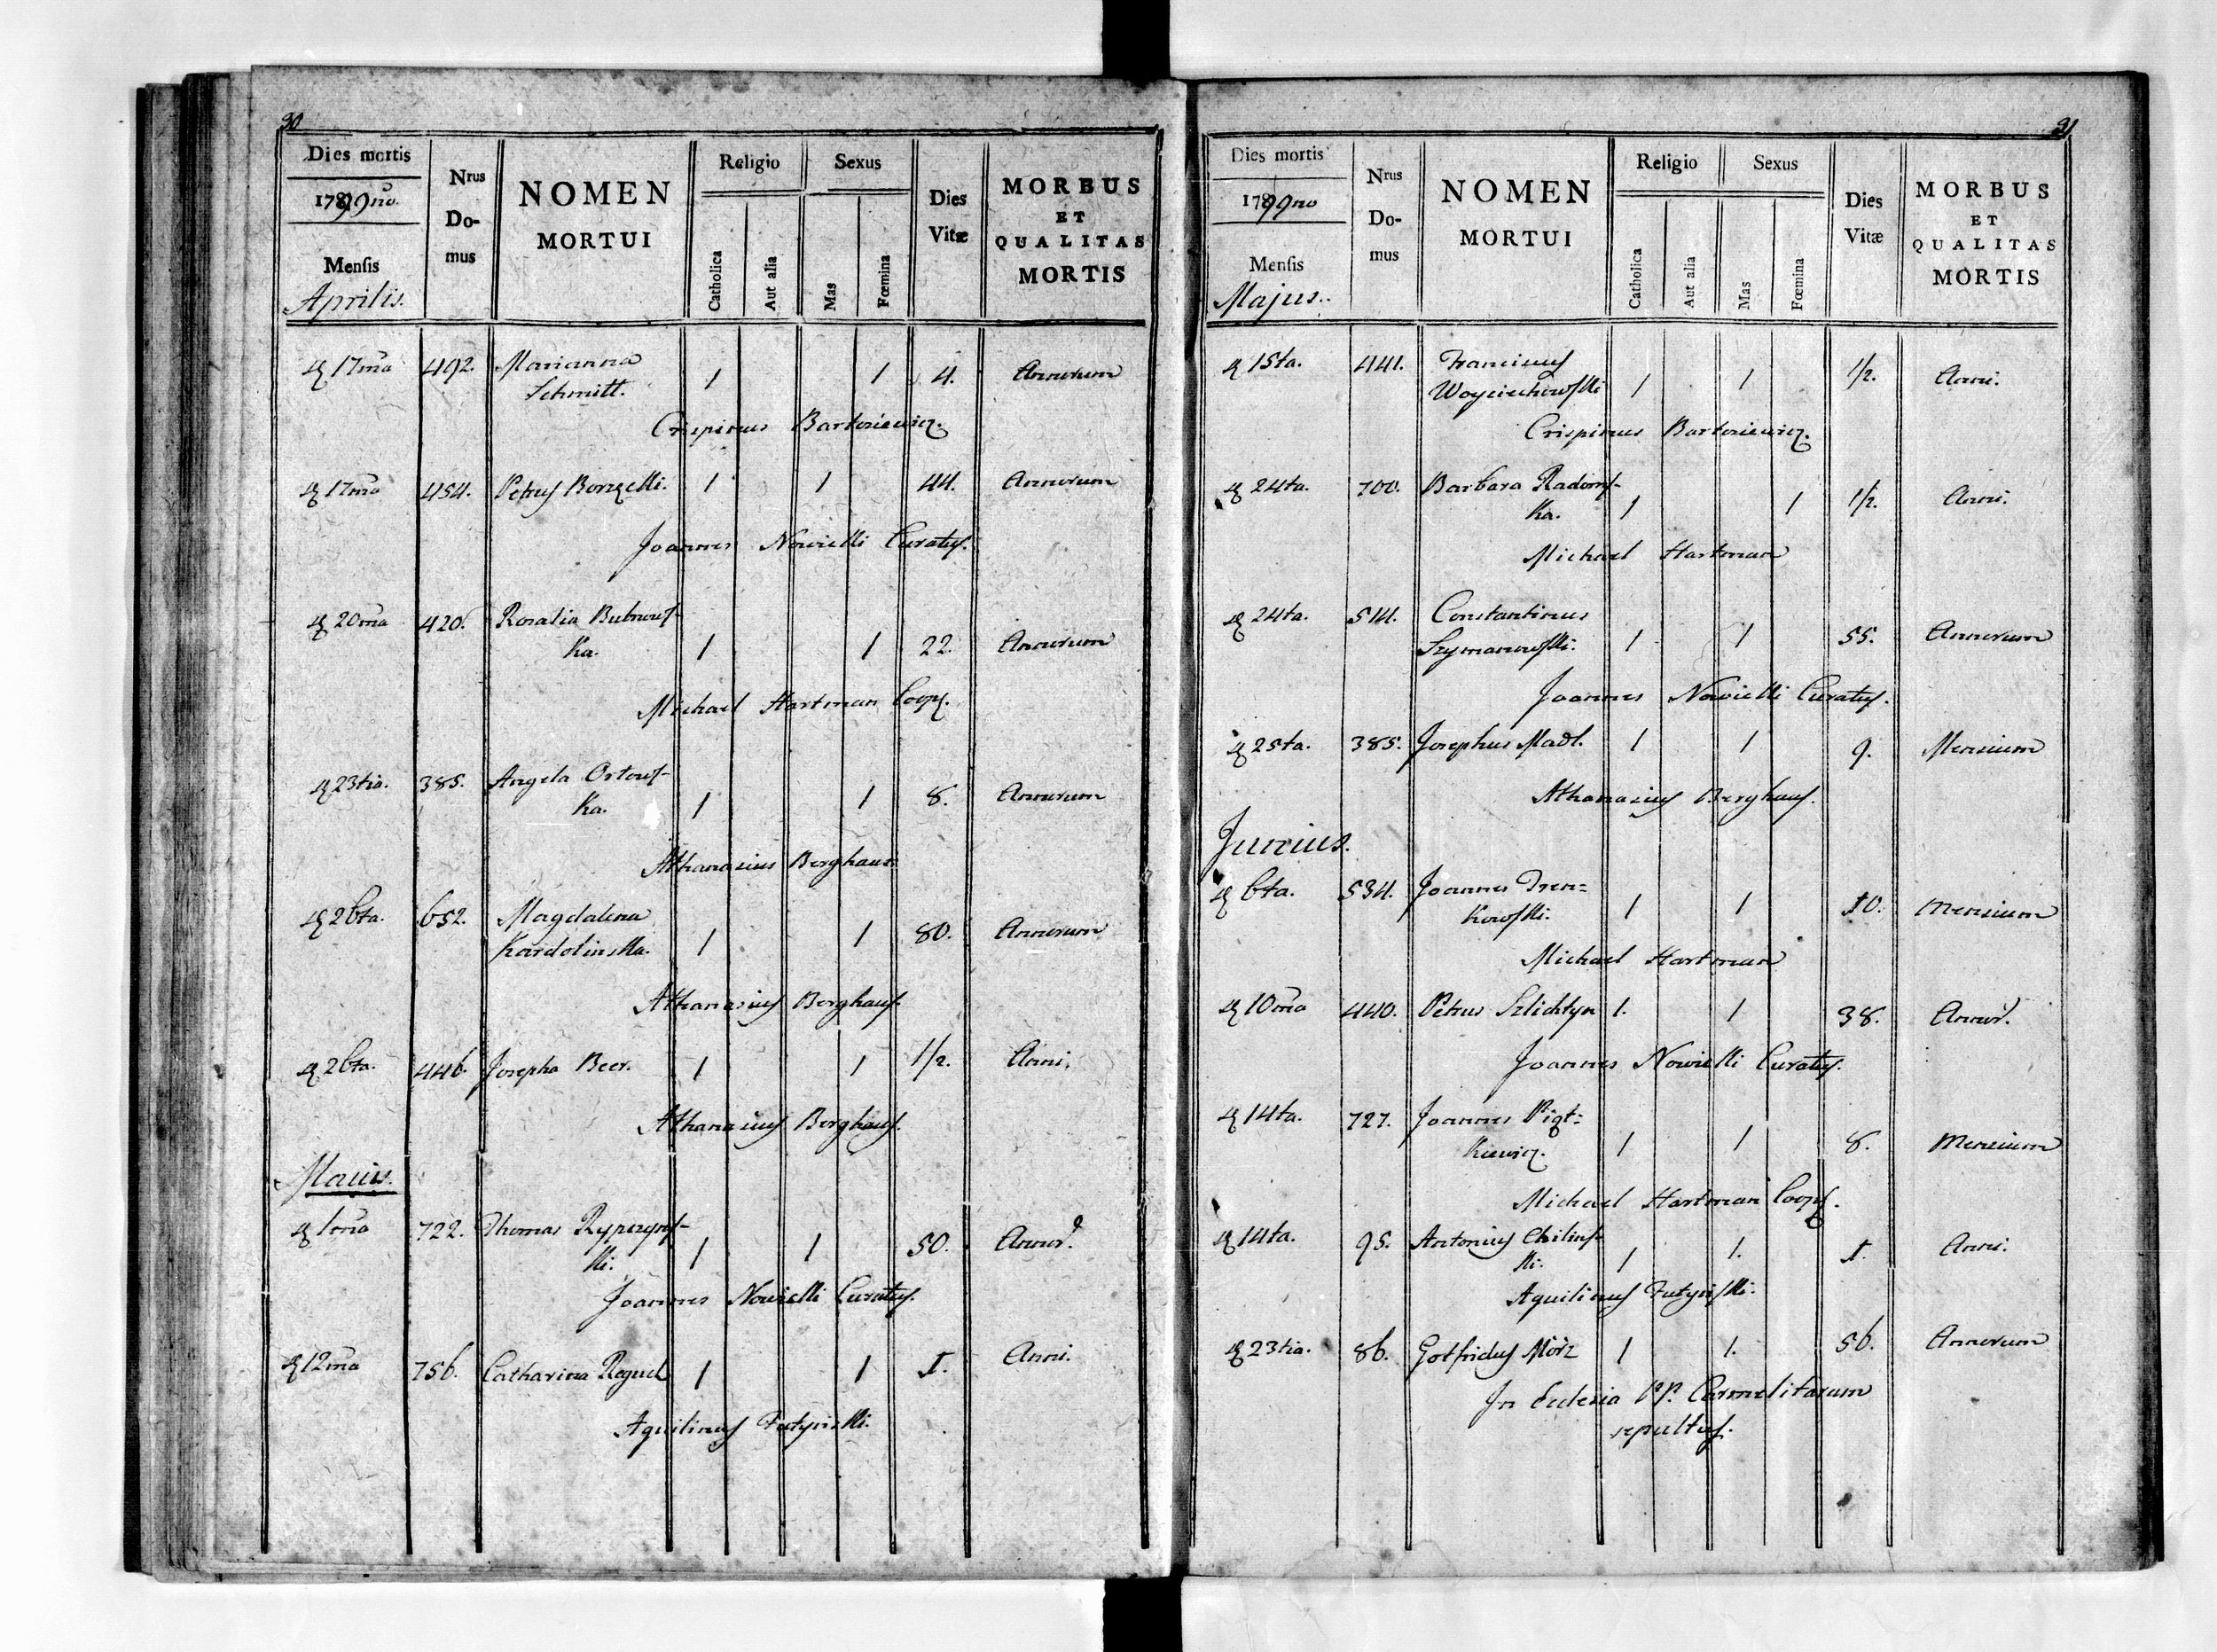 30
Dies mortis
1799no.
Mensis
Aprilis.
Nrus
Do-
mus
NOMEN
MORTUI
Religio
Catholica
Aut alia
Sexus
Mas
Fœmina
Dies
Vitæ
MORBUS
ET
QUALITAS
MORTIS
17ma 492. Marianna
Schmitt. 1 1 4. Annorum
Crispinus Bartoniewicz.
17ma 454. Petrus 1 1 44. Annorum
Joannes Nowicki Curatus.
20ma 420. Rosalia Bubnows-
ka. 1 1 22. Annorum
Michael Hartman Coop.
23tia. 385. Angela Ortows-
ka. 1 1 8. Annorum
Athanasius Berghaus
26ta. 652. Magdalena
Kardolinska. 1 1 80. Annorum
Athanasius Berghaus.
26ta. 446. Josepha Beer. 1 1 1/2. Anni.
Athanasius Berghaus.
Maius.
1ma 722. Thomas
ki. 1 1 50. Annor.
Joannes Nowicki Curatus.
12ma 756. Catharina 1 1 1. Anni.
Aquilinus
31
Dies mortis
1799no
Mensis
Majus.
Nrus
Do-
mus
NOMEN
MORTUI
Religio
Catholica
Aut alia
Sexus
Mas
Fœmina
Dies
Vitæ
MORBUS
ET
QUALITAS
MORTIS
15ta. 441. Franciscus
Woyciechowski 1 1 1/2. Anni.
Crispinus Bartoniewicz.
24ta. 700. Barbara Radoms-
ka. 1 1 1/2. Anni.
Michael Hartman
24ta. 514. Constantinus
Szymanowski. 1 1 55. Annorum
Joannes Nowicki Curatus.
25ta. 385. Josephus Madl. 1 1 9. Mensium
Athanasius Berghaus.
Junius.
6ta. 534. Joannes Dren=
kowski. 1 1 10. Mensium
Michael Hartman
10ma 440. Petrus Szlichtyn 1. 1 38. Annor.
Joannes Nowicki Curatus.
14ta. 727. Joannes Piąt=
kiewicz. 1 1 8. Mensium
Michael Hartman Coop.
14ta. 95. Antonius Chilins-
ki. 1 1. 1. Anni.
Aquilinus
23tia. 86. Gotfridus Mörz 1 1. 56. Annorum
In Eclesia PP. Carmelitarum
sepultus.